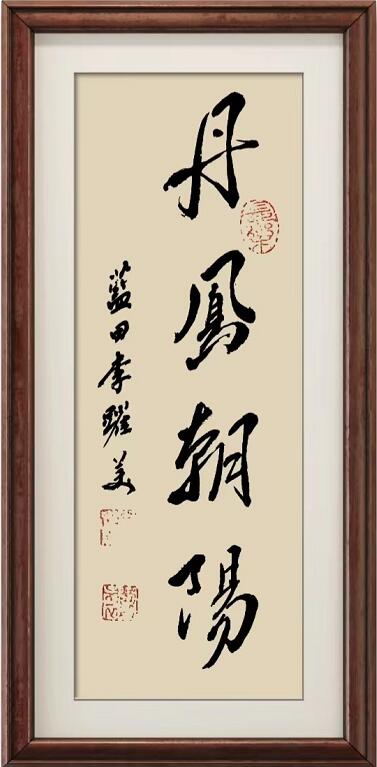 丹鳳朝陽
藍田李耀美